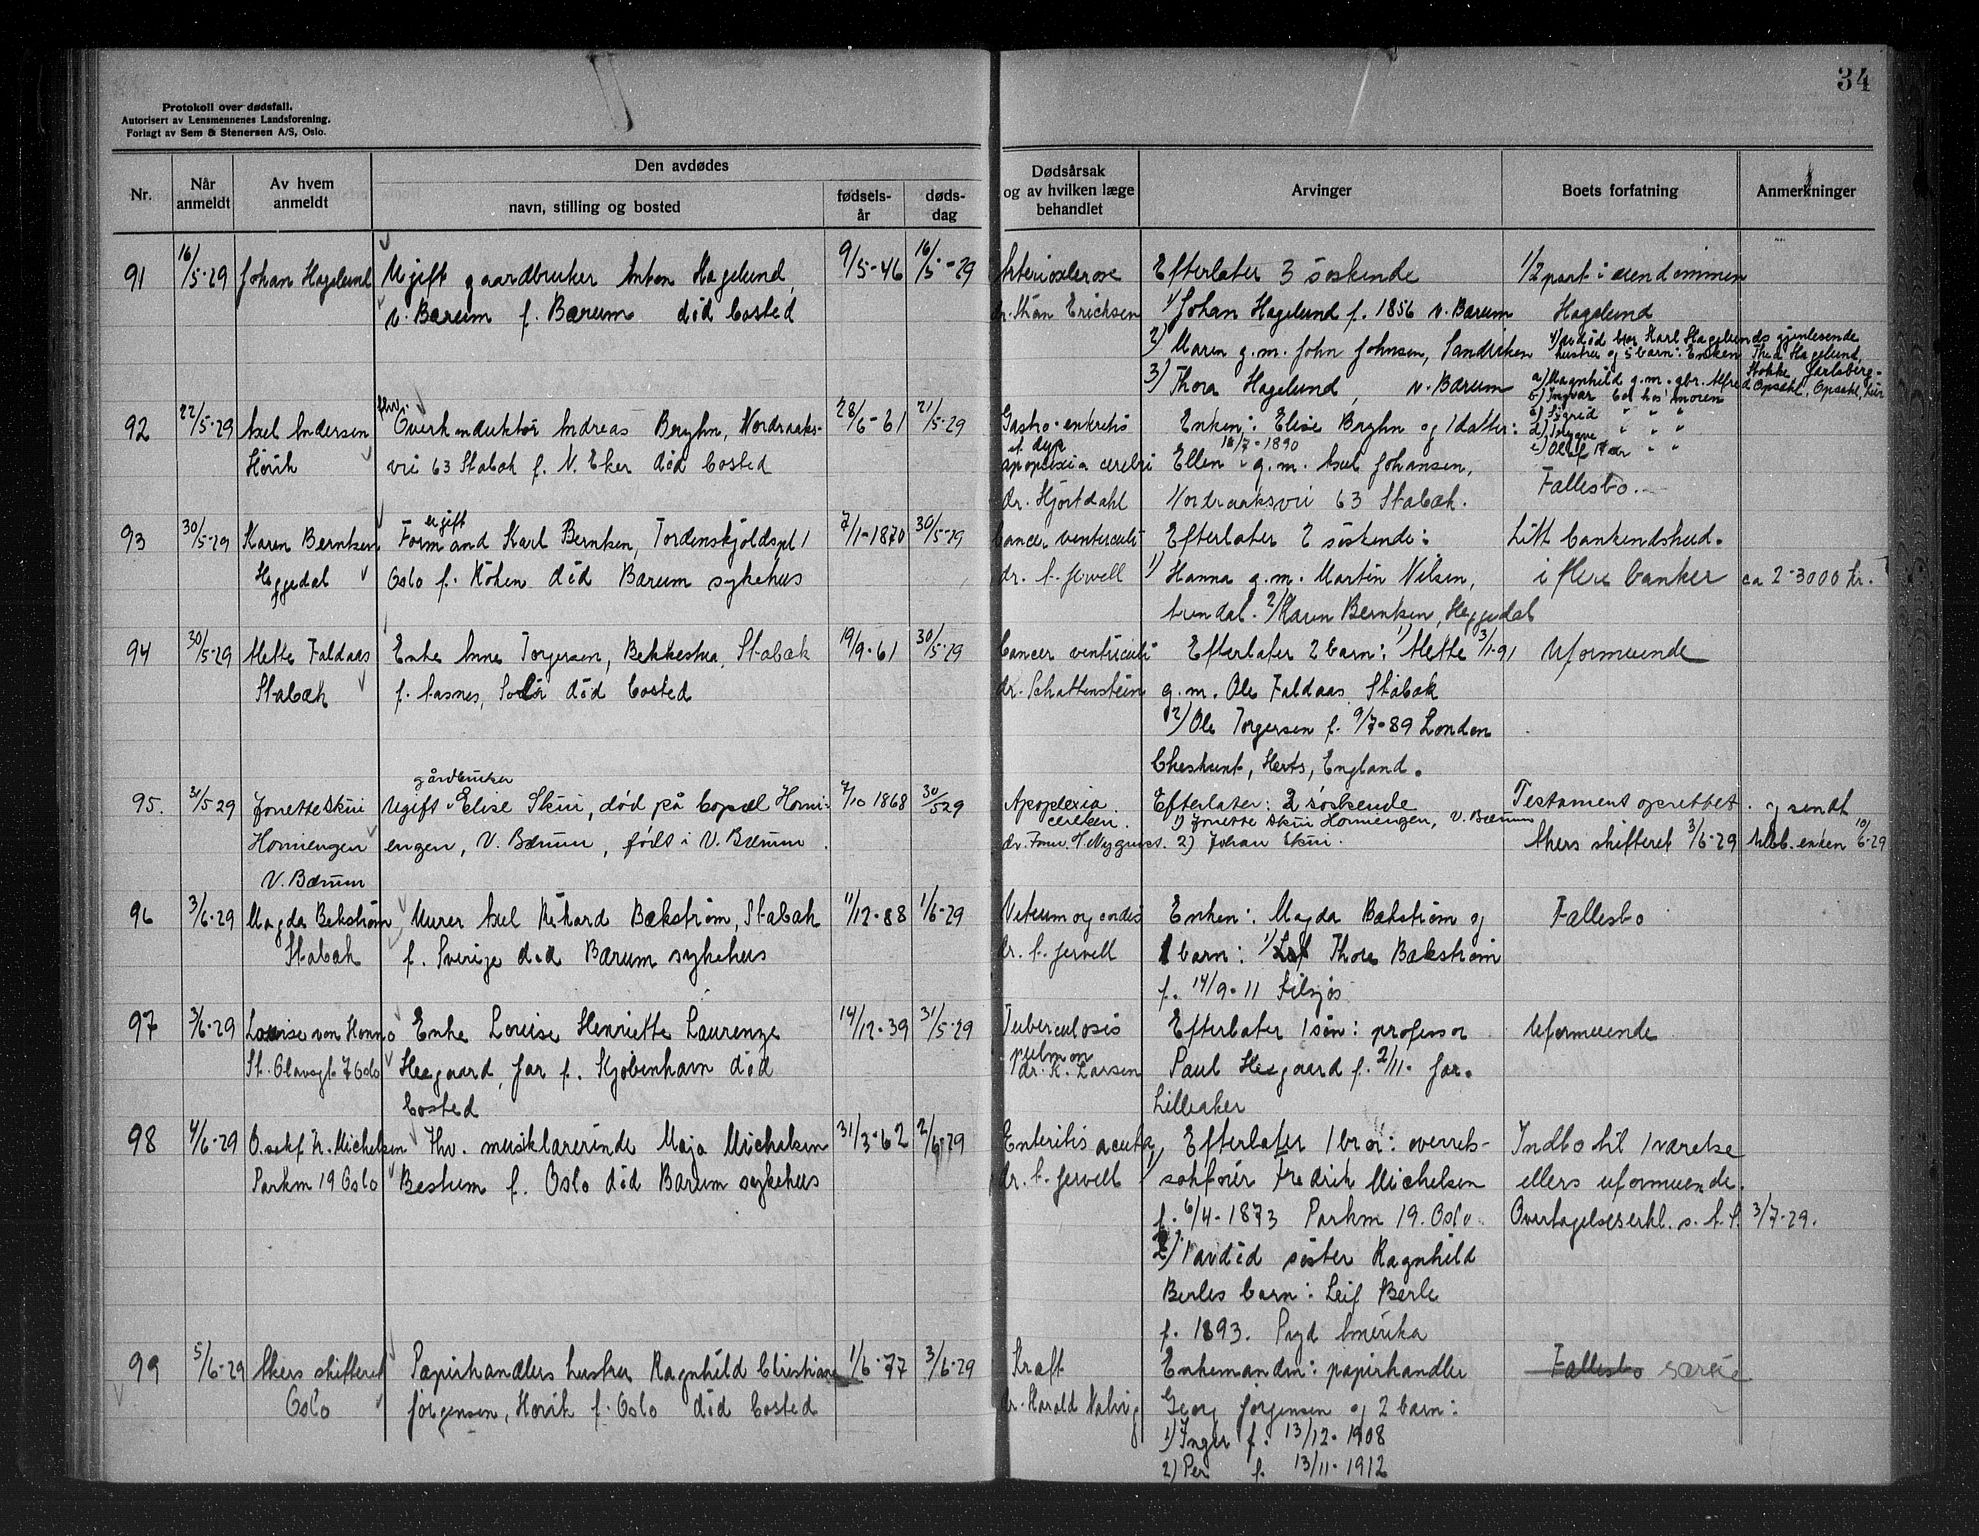 34
Protokoll over dødsfall.
Autorisert av Lensmennenes Landsforening.
Forlagt av Sem & Stenersen A/S, Oslo.
Nr.
Når anmeldt
Av hvem anmeldt
Den avdødes
navn, stilling og bosted
fødsels-år
døds-dag
Dødsårsak og av hvilken læge behandlet
Arvinger
Boets forfatning
Anmerkninger
91 16/5-29 Johan Hagelund Ugift gaardbruker Anton Hagelund, 9/5-46 16/5-29 Arteriosclerose Efterlater 3 søskende 1/2 part i eiendommen
V. Bærum f. Bærum død bosted dr. Erichsen 1) Johan Hagelund f. 1856 V. Bærum Hagelund
2) Maren g.m. John Johnsen, Sandviken 4) avdød bror Karl Hagelunds gjenlevende
hustru og 5 barn: Enken Thea Hagelund,
3) Thora Hagelund, V. Bærum a) Magnhild g.m. gbr. Alfred Opsahl, Opsahl, Lier
b) Ingvar bol hos moren
92 22/5-29 Axel Andersen fhv. Overkonduktør Andreas Bryhn, Nordraaks- 28/6-61 21/5-29 Gastro-enteritis Enken: Elise Bryhn og 1 datter: c) Sigrid " " "
d) Trygve " " "
Høvik vei 63 Stabæk f. N. Eker død bosted apoplexia cerebri Ellen 16/7-1890 g.m. Axel Johansen, e) Olaf
dr. Hjortdahl Nordraaksvei 63 Stabæk. Fællesbo.
93 30/5-29 Karen Berntsen Formand Karl Berntsen, Tordenskjoldspl 1 7/1-1870 30/5-29 Cancer ventriculi Efterlater 2 søskende: Litt bankindskud.
Heggedal Oslo f. Røken død Bærum sykehus dr. A. Jervell 1) Hanna g.m. Martin Nilsen, i flere banker ca 2-3000 kr.
Arendal. 2) Karen Berntsen, Heggedal
94 30/5-29 Mette Faldaas Enke Anne Torgersen, Bekkestua, Stabæk 19/9-61 30/5-29 Cancer ventriculi Efterlater 2 barn: 1) Mette 3/1-91 Uformuende
Stabæk f. Aasnes, Solør død bosted dr. Schattenstein g.m. Ole Faldaas Stabæk
2) Ole Torgersen f. 9/7-89 London
Cheshunt, Herts, England.
gårdbruker
95. 31/5 29 Jonette Skui Ugift Elise Skui, død på bopæl Horni- 7/10 1868 30/5 29 Apoplexia Efterlater: 2 søskende Testament oprettet. og sendt
cerebri. 1) Jonette Skui Horniengen, V. Bærum
Horniengen engen, V. Bærum, født i V. Bærum. 2) Johan Skui. Akers skifteret 3/6-29 10/6-29
V. Bærum
96 3/6-29 Magda Bekstrøm Murer Axel Rikard Bækstrøm, Stabæk 11/12-88 1/6-29 Vitium org cordis Enken: Magda Bækstrøm og Fællesbo
Stabæk f. Sverige død Bærum sykehus dr. A. Jervell 1 barn: 1) Leif Thore Bækstrøm
f. 14/9-11
97 3/6-29 Louise von Hanno Enke Louise Henriette Laurenze 14/12-39 31/5-29 Tuberculosis Efterlater 1 søn: professor Uformuende
St. Olavsgt 7 Oslo Heegaard, Jar f. Kjøbenhavn død pulmon Poul Heegaard f. 2/11- Jar.
bosted dr. K. Larsen Lilleaker
98 4/6-29 O.sakf. Fr. Michelsen Fhv. musiklærerinde Maja Michelsen 31/3-62 2/6-29 Enteritis acuta, Efterlater 1 bror: overrets- Indbo til 1 værelse
Parkvn 19 Oslo Bestum f. Oslo død Bærum sykehus dr. A. Jervell 1) sakfører Fredrik Michelsen ellers uformuende.
f. 6/4-1873 Parkvn 19. Oslo. Overtagelseserkl. s. A. S. 3/7-29.
2) 1 avdød søster Ragnhild
Berles barn: Leif Berle
f. 1893. Amerika
99 5/6-29 Akers skifteret Papirhandlers hustru Ragnhild Christiane 1/6-77 3/6-29 Kræft Enkemanden: papirhandler Fællesbo særeie
Oslo Jørgensen, Høvik f. Oslo død bosted dr. Harald Natvig Georg Jørgensen og 2 barn:
1) Inger f. 13/12-1908
2) Per f. 13/11-1912